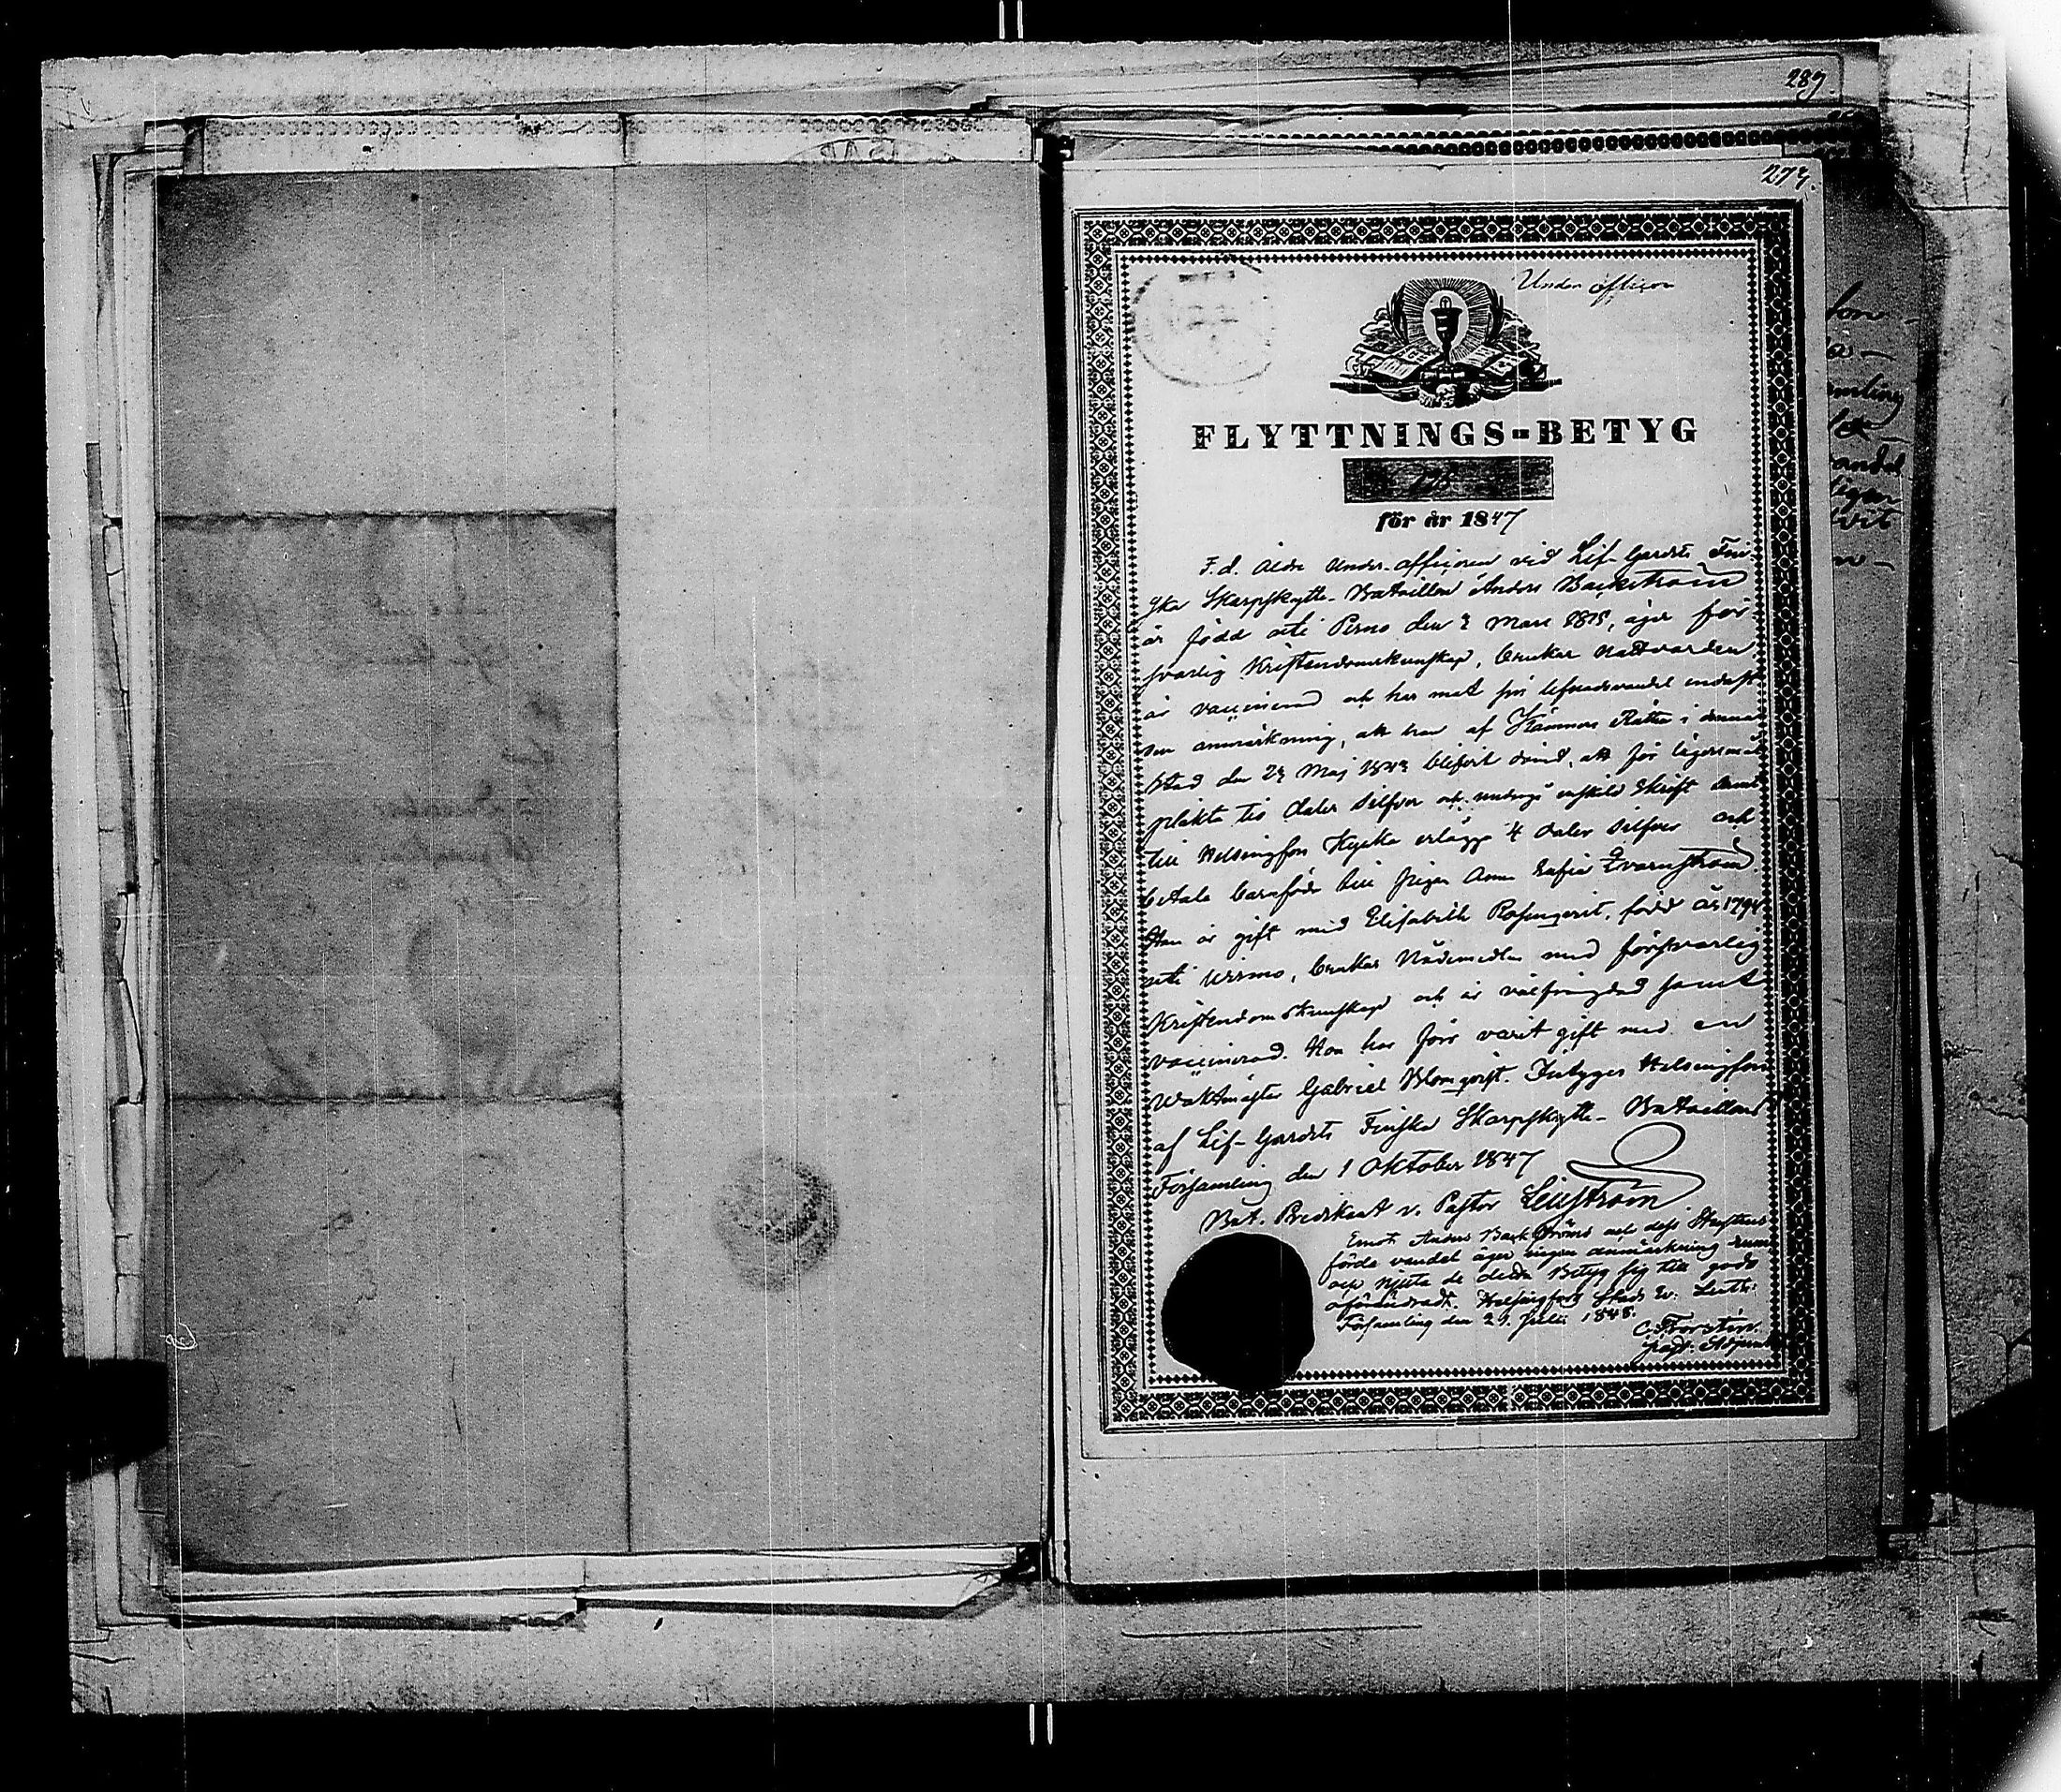 289.
277.
Under officer
FLYTTNINGS-BETYG
för år 1847
F.d. Äldre Under-officeren vid Lif-Gardets Fin-
ska Skarpskytte-Bataillon Anders Backström
är född uti Perno den 2 Mars 1815, äger för-
svarlig Kristendomskunskap, brukar Nattvarden
är vaccinerad och har med sin lefnadsvandel endast
den anmärkning, att han af Kämners Rätten i denna
stad den 23 Maj 1843 blifvit dömd, att för lägersmål
plikta tio daler silfver och undergå enskild skrift samt
till Helsingfors Kyrka erlägga 4 daler silfver och
betala barnföda till pigan Anna Sofia Qvarnström.
Han är gift med Elisabeth Rosengvist, född år 1794
uti Urimo, brukar Nådemedlen med försvarlig
Kristendomskunskap och är välfrejdad samt
vaccinerad. Hon har förr varit gift med en
Waktmäster Gabriel Blomqvist. Intygges Helsingfors
af Lif-Gardets Finska Skarpskytte-Bataillons
Församling den 1 Oktober 1847
Bat. Predikant v. Pastor Leistrom
Emot Anders Backströms och dess Hustrus
förda vandel äger ingen anmärkning rum
och njuta de detta Betyg sig till godo
oförändradt. Helsingfors Stads Ev. Luth.
Församling den 29. Juli 1848.
C. Forström.